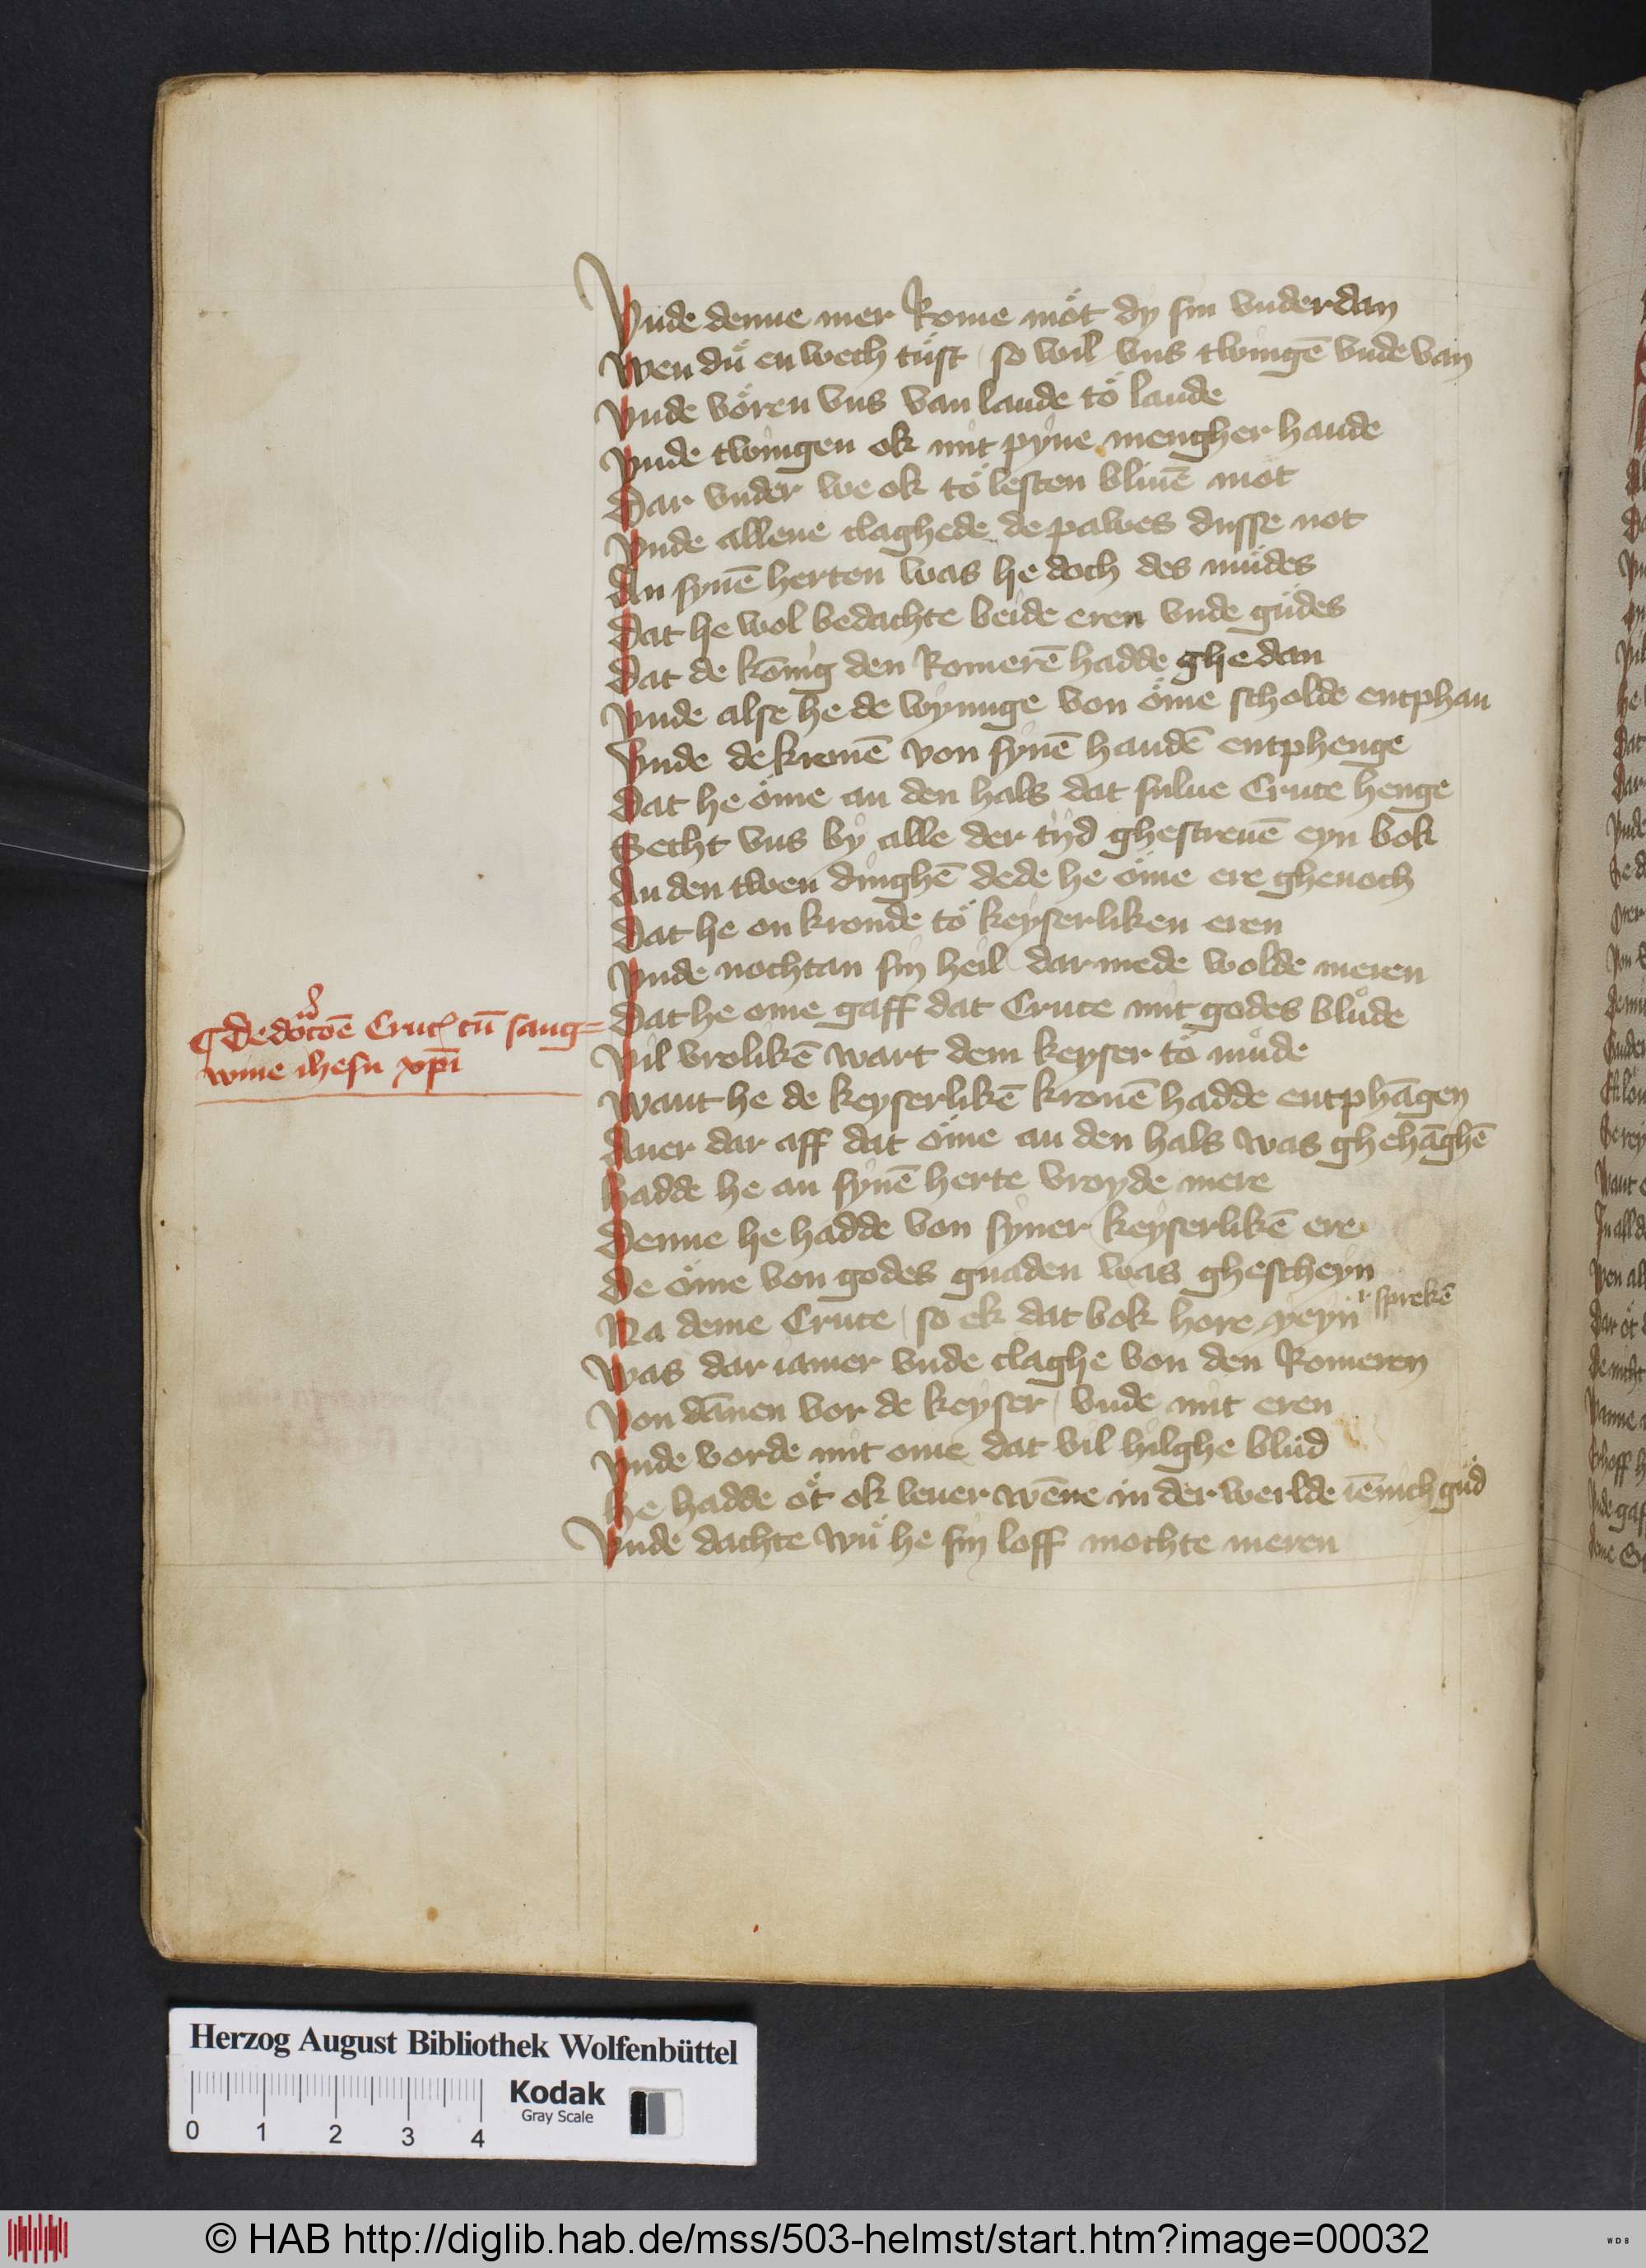 Vnde denne mer Rome mo̎t dy sin vnderdan
Wen du̎ en wech tu̎st so wil vns twingē vnde van
Vnde vo̎ren vns van lande to̎ lande
Vnde twingen ok mit pyne mengher hande
Dar vnder we ok to̎ lesten bliuē mot
Vnde allene claghede de pawes dusse not
An synē herten was he doch des mu̎des
Dat he wol bedachte beide eren vnde gu̎des
Dat de kōnig den Romerē hadde ghedan
Vnde alse he de wynnge von öme scholde entphan
Vnde de kronē von synē handē entphenge
Dat he öme an den hals dat sulue Cruce henge
Secht vns by alle der tyd ghescreuē eyn bok
An den twen dinghē dede he öme ere ghenoch
Dat he on kronde to̎ keyserliken eren
Vnde nochtan sin heil dar mede wolde meren
Dat he ome gaff dat Cruce mit godes blůde
Vil vrolikē wart dem keyser to̎ mu̎de
Want he de keyserlikē kronē hadde entphāgen
Auer dar aff dat öme an den hals was ghehāghē
Hadde he an synē herte vroyde mere
Denne he hadde von syner keyserlikē ere
De öme von godes gnaden was ghescheyn
Na deme Cruce so ek dat bok hore yeyn sprekē
Was dar iamer vnde claghe von den Romeren
Von dānen vor de keyser vnde mit eren
Vnde vorde mit ome dat vil hilghe blůd
He hadde o̎t ok leuer wēne in der werlde iēnich gu̎d
Vnde dachte wu̎ he sin loff mochte meren
De Cruc̉ cū sang=
wine ihesu xp̄i
Herzog August Bibliothek Wolfenbüttel
Kodak
Gray Scale
0 1 2 3 4
© HAB http://diglib.hab.de/mss/503-helmst/start.htm?image=00032
WDB